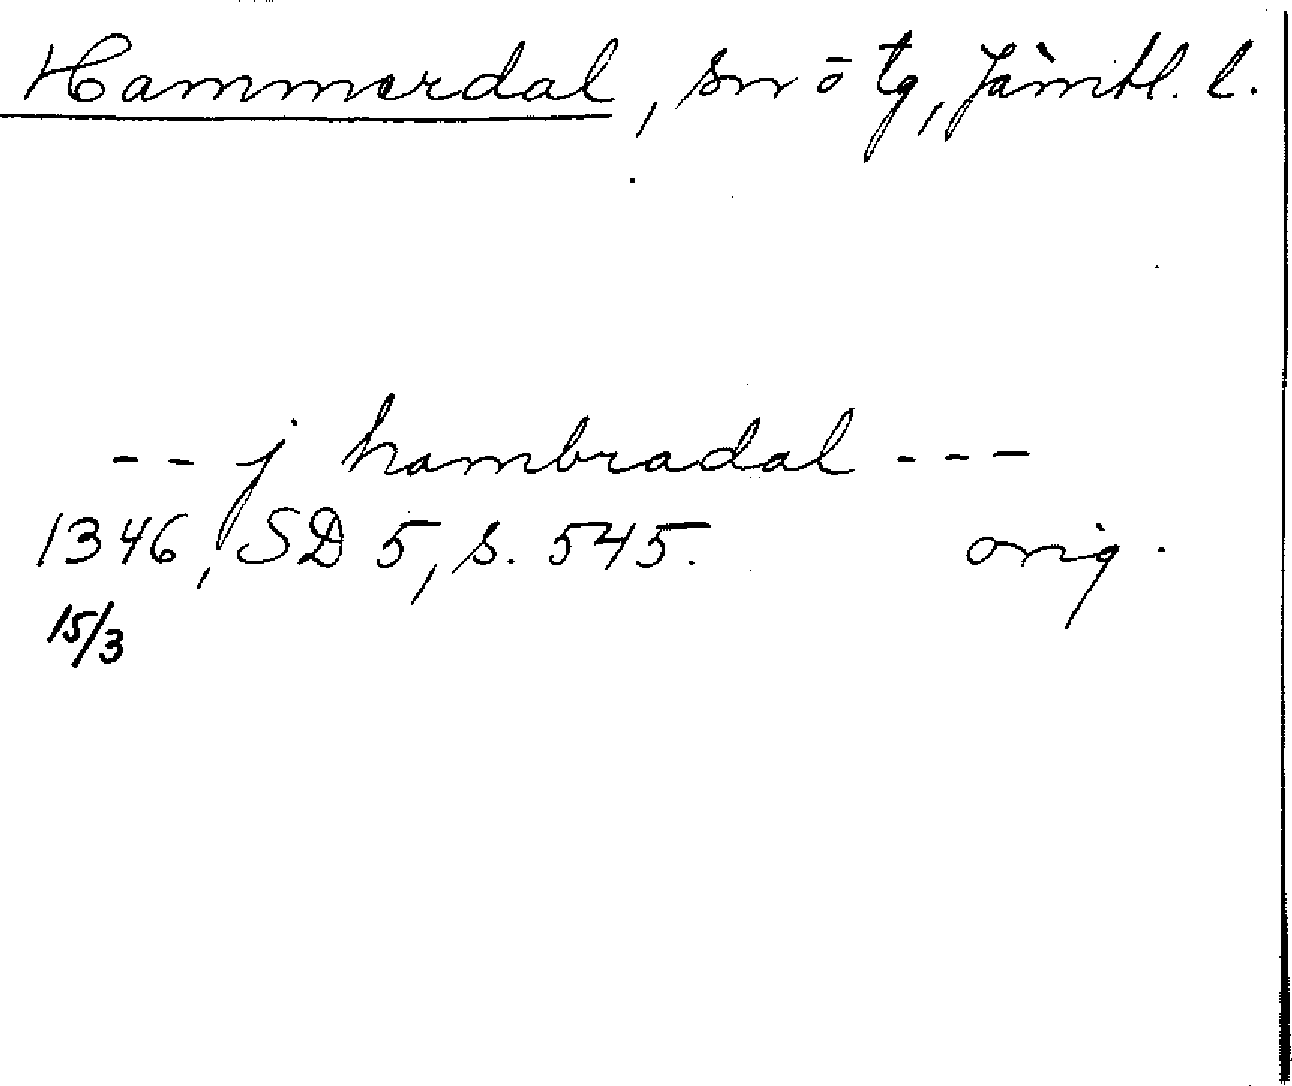 Hammerdal, sn o tg, Jämtl. l.
-- j hambradal ---
1346, SD 5, s. 545. orig.
15/3